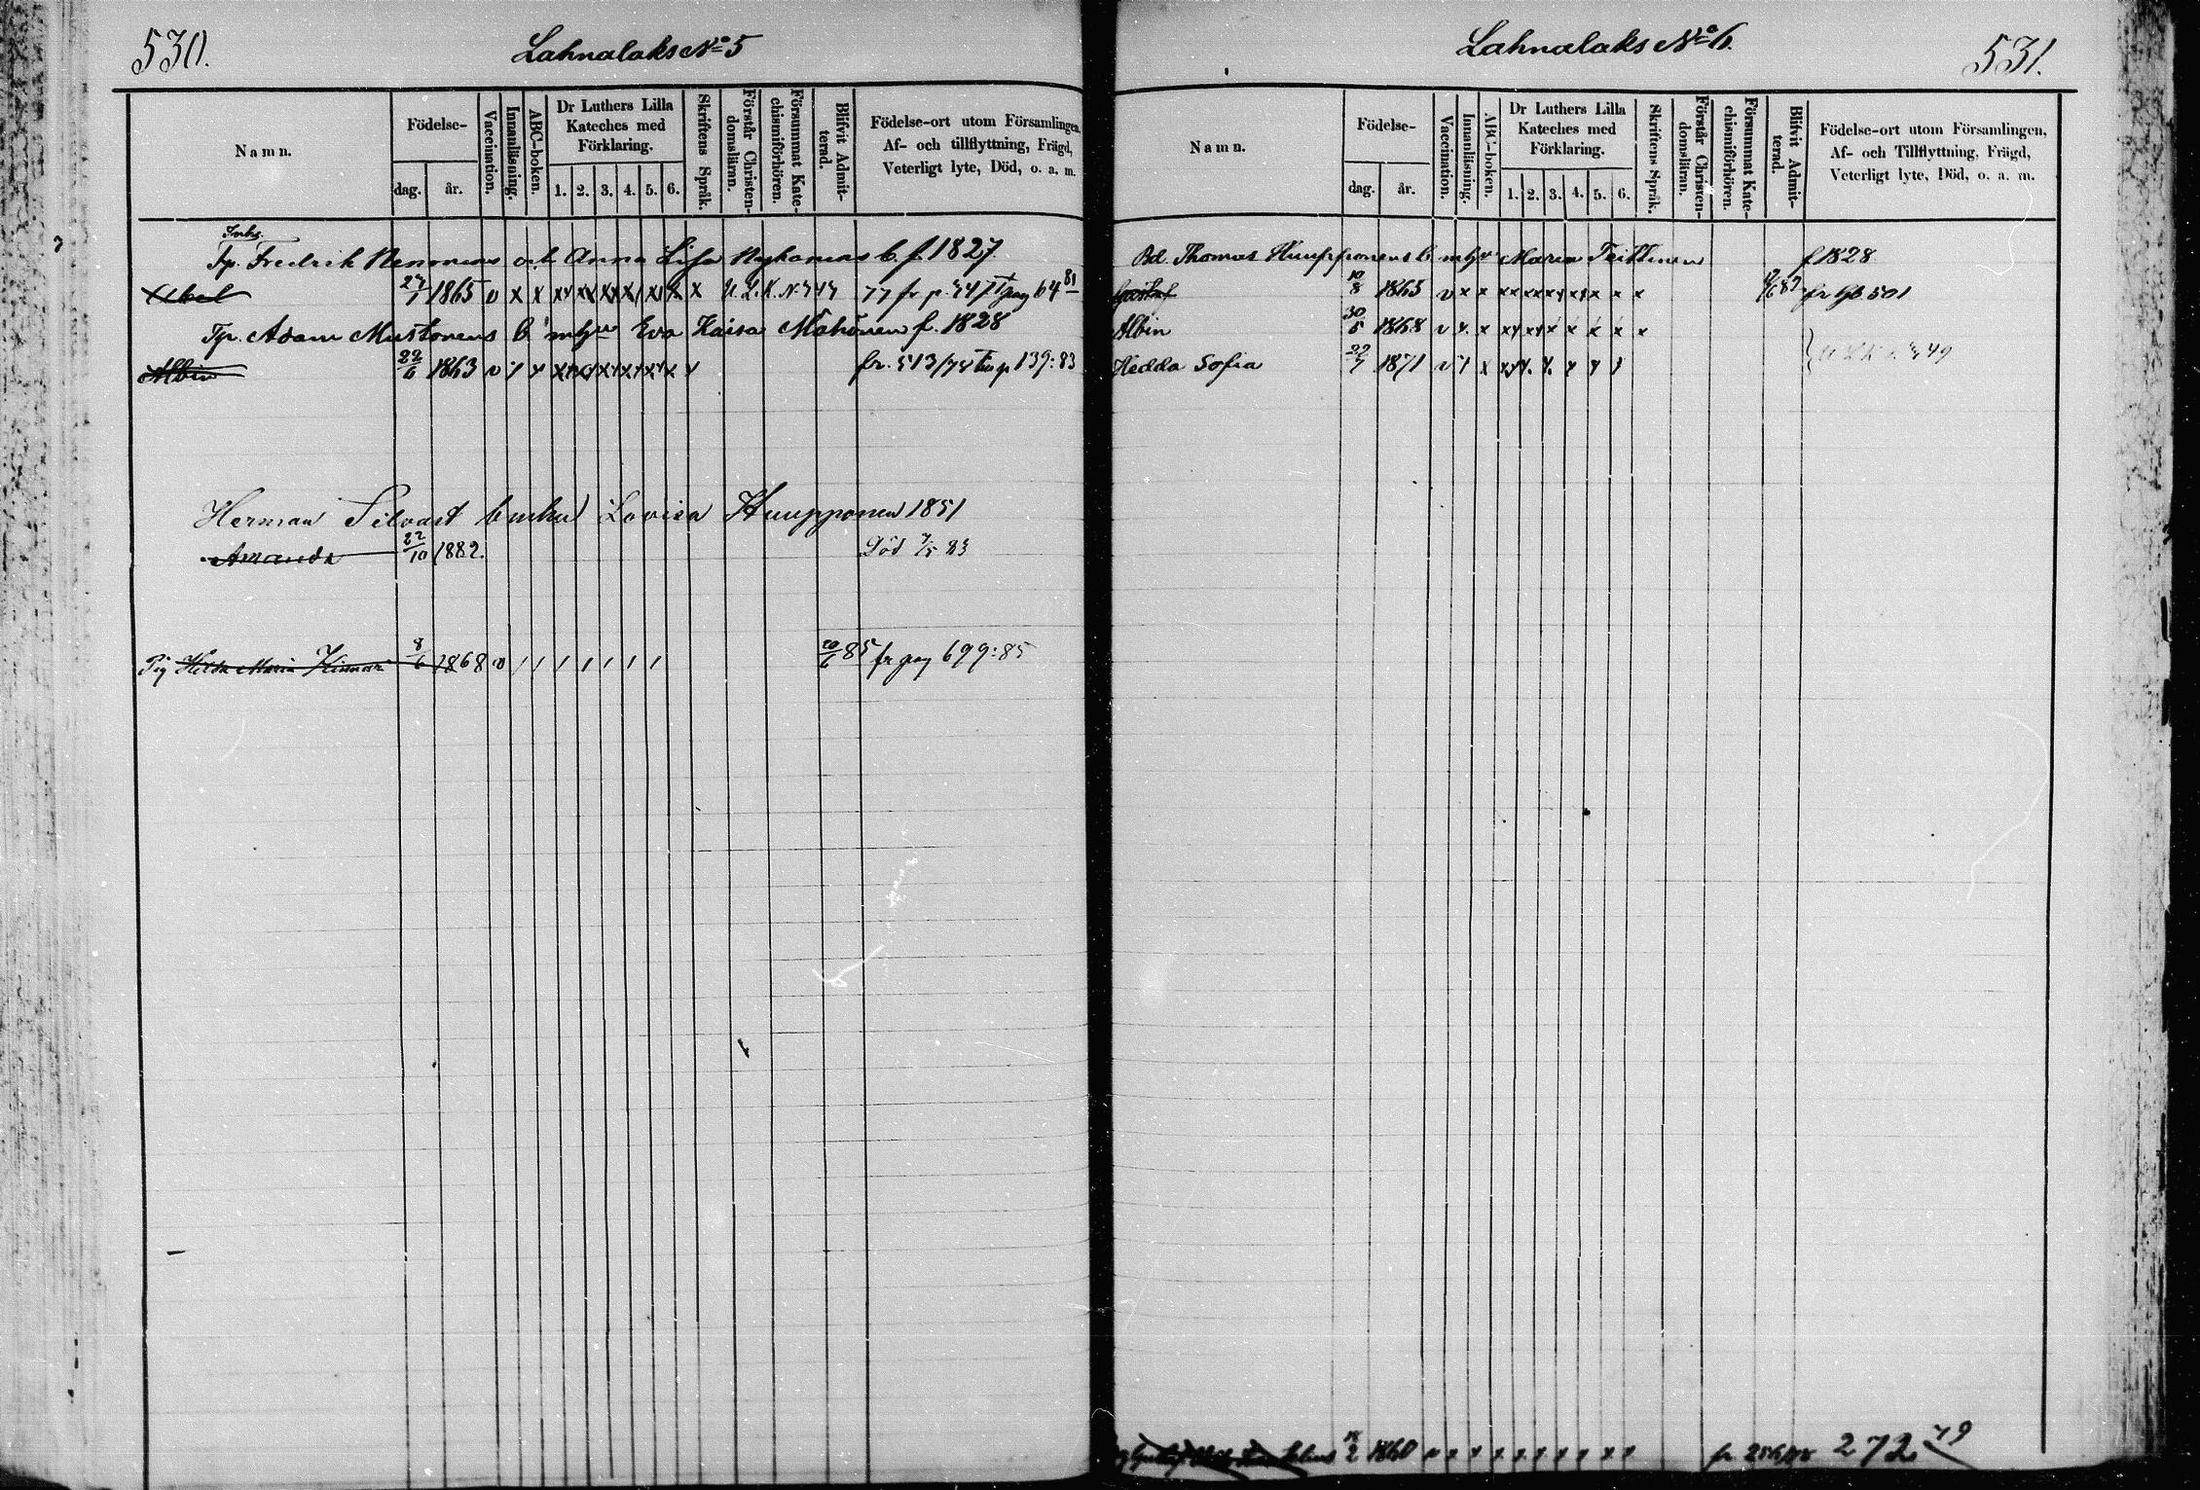 530.
Lahnalaks No 5
Namn.
Födelse-
dag.
år.
Vaccination.
Innanläsning.
ABC-boken.
Dr Luthers Lilla
Kateches med
Förklaring.
1. 2. 3. 4. 5. 6.
Skriftens Språk.
Förstår Christen-
domsläran.
Försummat Kate-
chismiförhören.
Blifvit Admit-
terad.
Födelse-ort utom Församlingen,
Af- och tillflyttning, Frägd,
Veterligt lyte, Död, o. a. m.
Inhs.
Tp. Fredrik Nenonens och Anna Lisa Nykänens b. f. 1827.
Abel 27/1 1865 v x x x x x x x x x 77 fr p. pag 64 81
Tp. Adam Mustonens b mhu Eva Kaisa Mähönen f. 1828
Albin 22/6 1863 v fr. 513/78 p 139:83
Herman Silvast Lovisa Huupponen 1851
Amanda 22/10 1882. Död 7/5 83
Pig Hilda Maria 8/6 1868 v / / / / / / / 20/6 85 fr pag 699:85
Lahnalaks No 6.
531.
Namn.
Födelse-
dag.
år.
Vaccination.
Innanläsning.
ABC-boken.
Dr Luthers Lilla
Kateches med
Förklaring.
1. 2. 3. 4. 5. 6.
Skriftens Språk.
Förstår Christen-
domsläran.
Försummat Kate-
chismiförhören.
Blifvit Admit-
terad.
Födelse-ort utom Församlingen,
Af- och Tillflyttning, Frägd,
Veterligt lyte, Död, o. a. m.
Bd. Thomas Huupponens b mhu Maria Teittinen f 1828
Gustaf 10/8 1865 v x x x x x x x x x fr 501
Albin 30/5 1868 v x x x x x x x x x
Hedda Sofia 22/7 1871 v
18/2 1860 v x x x x x x x x fr 272 79